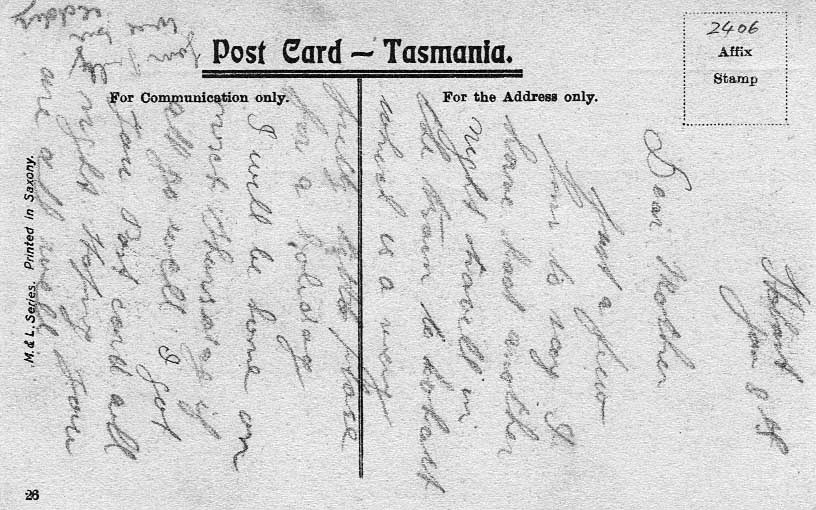 Post Card – Tasmania.
For Communication only.
For the Address only.
2406
Affix
Stamp
M. & L. Series. Printed in Saxony.
26
Hobart
Jan 8
Dear Mother
Just a few
lines to say I
have had another
night travell in
the train to hobart
which is a very
little place
for a holiday
I will be home on
next Thursday if
all go well I got
your Post card all
right Hoping you
are all well